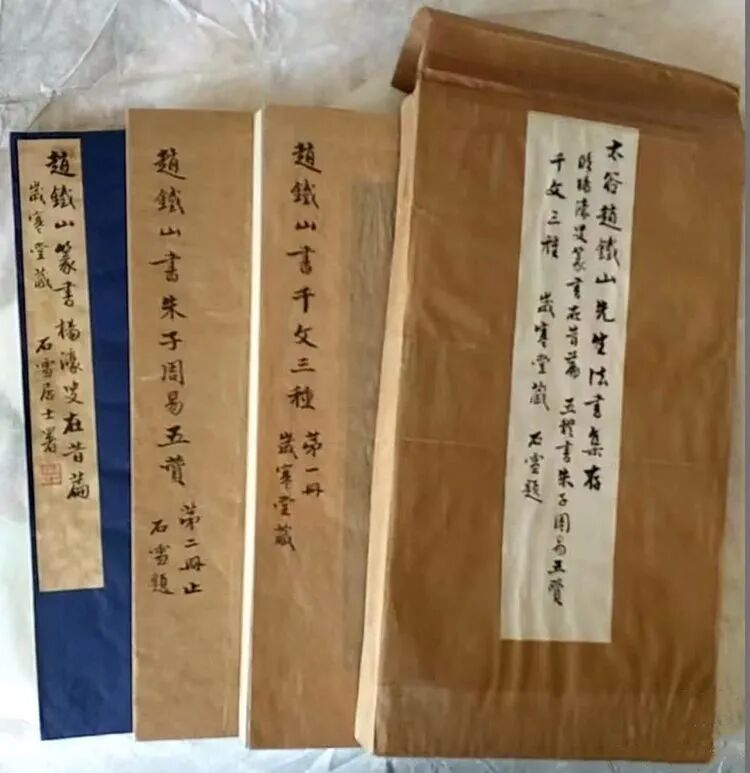 太谷趙鐵山先生法書集存
臨楊濠叟篆書在昔篇 五 書朱子周易五贊
千文三種 歲寒堂藏 石雪題
趙鐵山書千文三種 第一冊
歲寒堂藏
趙鐵山書朱子周易五贊 第二冊止
石雪題
趙鐵山篆書楊濠叟在昔篇
歲寒堂藏 石雪居士署